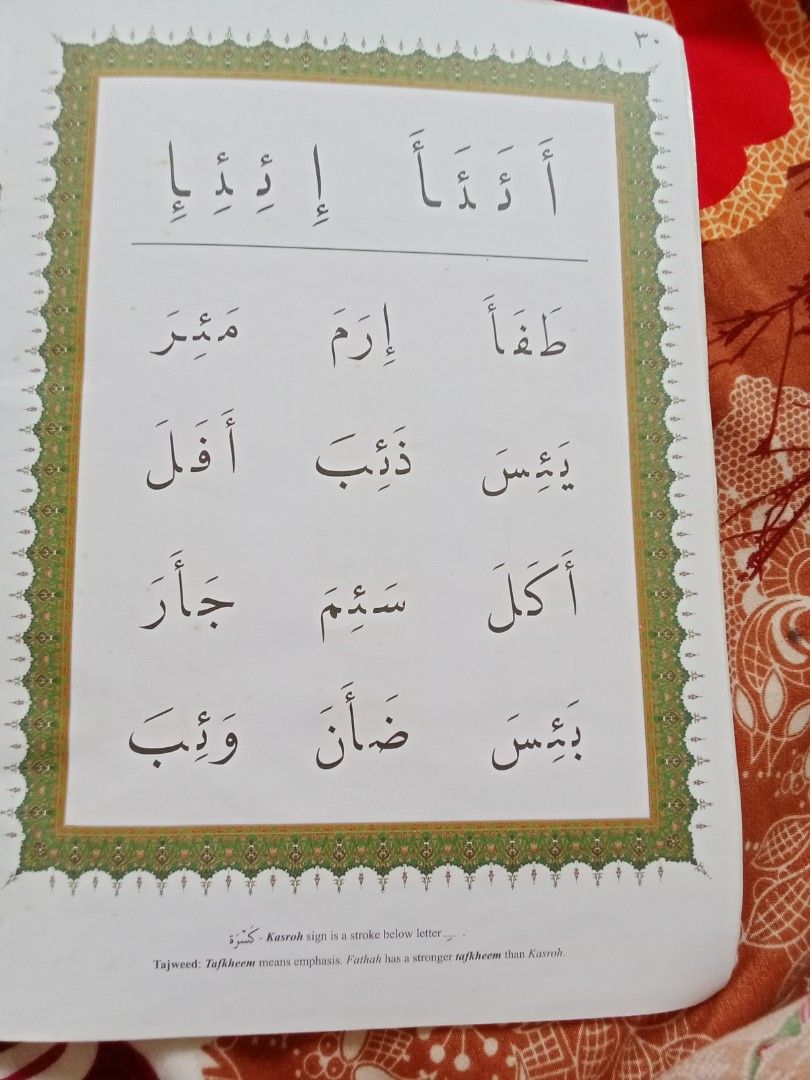 ٣٠
أَ ئَـ ـئَـ ـأَ إِ ئِـ ـئِـ ـإِ
طَفَأَ إِرَمَ مَئِرَ
يَئِسَ ذَئِبَ أَفَلَ
أَكَلَ سَئِمَ جَأَرَ
بَئِسَ ضَأَنَ وَئِبَ
كَسْرَة - Kasroh sign is a stroke below letter ـِ .
Tajweed: Tafkheem means emphasis. Fathah has a stronger tafkheem than Kasroh.